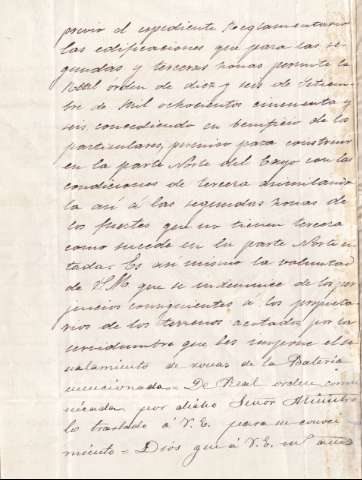 previo el espediente Reglamentario
las edificaciones que para las se-
gundas y terceras zonas permite la
Real órden de diez y seis de Setiem-
bre de Mil ochocientos cincuenta y
seis, concediendo en beneficio de los
particulares, permiso para construir
en la parte Norte del Cayo con las
condiciones de tercera asimilando
la asi á las segundas zonas de
los fuertes que no tienen tercera
como sucede en la parte Norte ci-
tada. Es asi mismo la voluntad
de S.M. que se indemnice de los per-
juicios consiguientes á los propieta-
rios de los terrenos acotados por la
servidumbre que les impone el se-
ñalamiento de zonas de la Bateria
mencionada. De Real orden comu-
nicada por dicho Señor Ministro
lo traslado á V.E. para su conoci-
miento = Dios gue á V.E. ms años